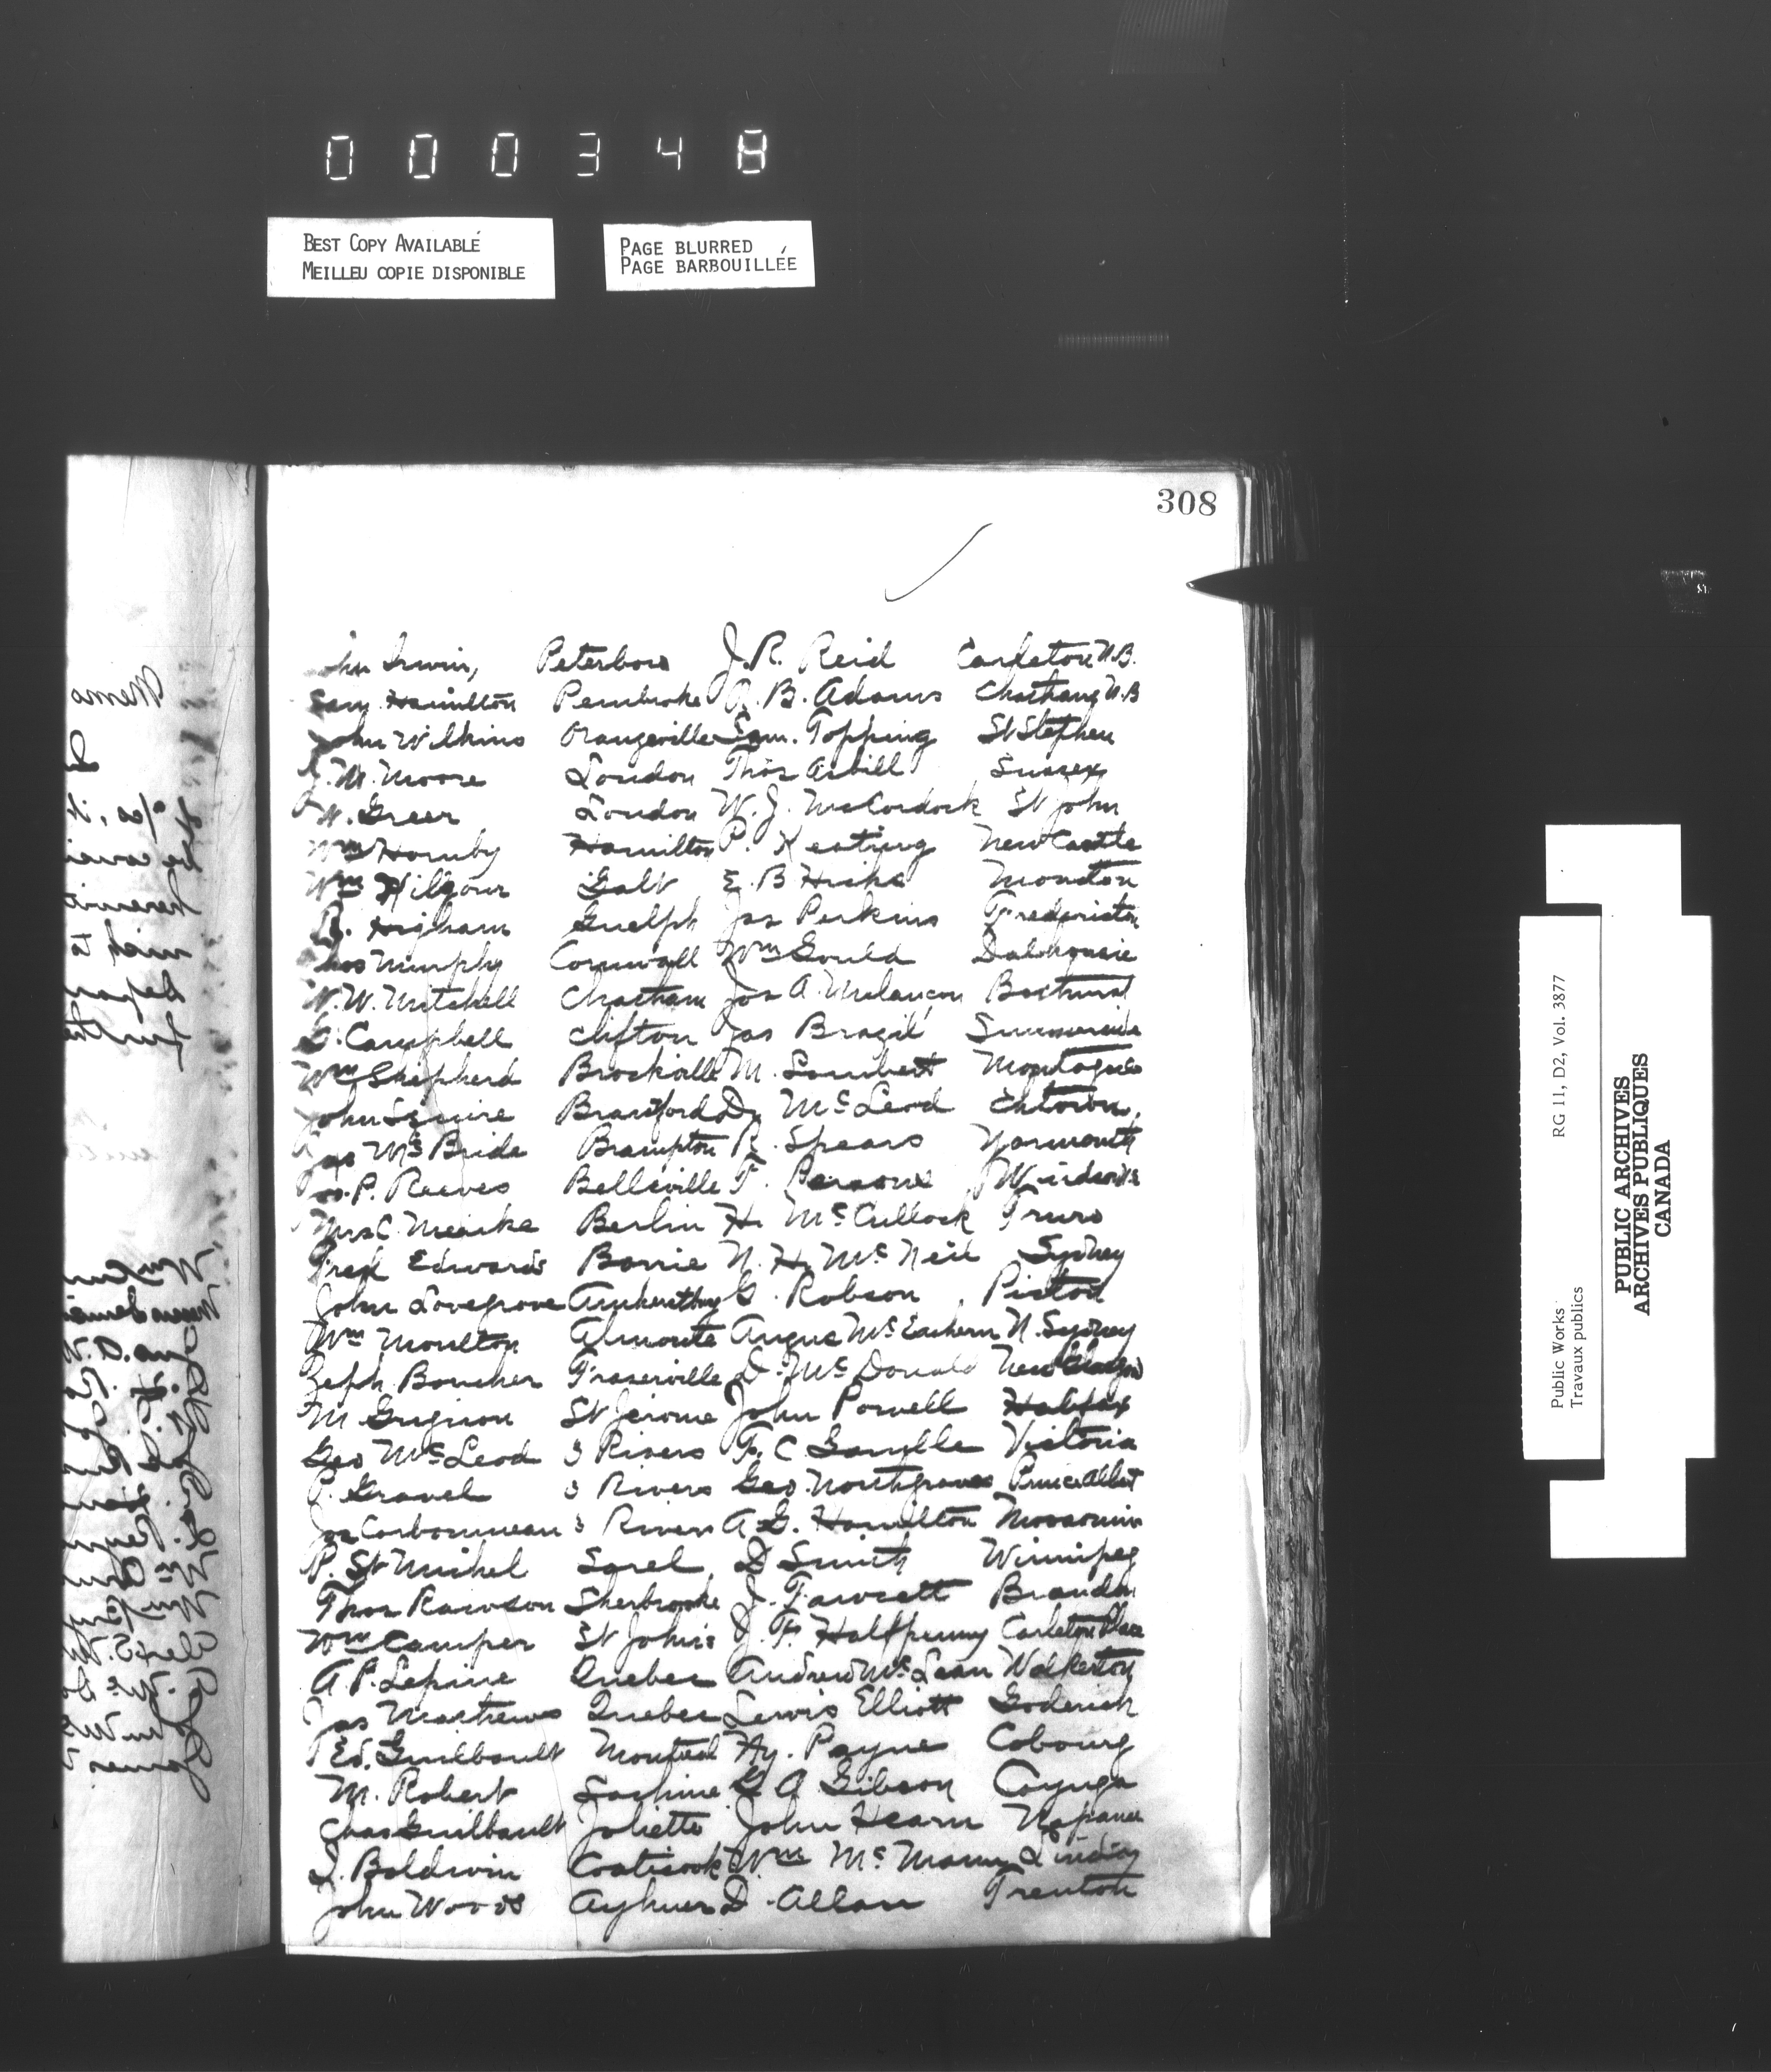 000348
BEST COPY AVAILABLE
MEILLEU COPIE DISPONIBLE
PAGE BLURRED
PAGE BARBOUILLÉE
308
John Irwin, Peterboro J. R. Reid Carleton N.B.
Sam. Hamilton Pembroke A. B. Adams Chatham N.B
John Wilkins Orangeville Sam. Topping St Stephen
J. M. Moore London Thos Asbill Sussex
W. Greer London W. J. McCordock St John
Wm Hornby Hamilton P. Keating New Castle
Wm Kilgour Galt E. B Hicks Moncton
R. Higham Guelph Jas Perkins Fredericton
Thos Murphy Cornwall Wm Gould Dalhousie
W. W. Mitchell Chatham Jos A. Melancon Bathurst
G. Campbell Clifton Jas Brazil Summerside
Wm Shepherd Brockville M. Lambert Montague
John Squire Brantford D. McLeod
Jas McBride Brampton R. Spears Yarmouth
P. Reeves Belleville F. Parsons Windsor NS
Mrs C. Meinke Berlin H. McCullock Truro
Fred Edwards Barrie N. H. McNeil Sydney
John Lovegrove Amherstburg G. Robson Pictou
Wm Moulton Almonte Angus McEachern N. Sydney
Zeph. Boucher Fraserville D. McDonald New Glasgow
M Grignon St Jerome John Powell Halifax
Geo McLeod 3 Rivers F. C. Gamble Victoria
P. Gravel 3 Rivers Geo. Northgraves Prince Albert
Jos Carbonneau 3 Rivers A G. Hamilton Moosomin
P. St Michel Sorel D Smith Winnipeg
Thos Rawson Sherbrooke J. Fawcett Brandon
Wm Camper St Johns J. F. Halfpenny Carleton Place
A. P. Lepine Quebec Andrew McLean Walkerton
Jas Mathews Quebec Lewis Elliott Goderich
Ed. Guilbault Montreal Hy. Payne Cobourg
M. Robert Lachine G A Gibson Cayuga
Chas Guilbault Joliette John Hearn Napanee
J. Baldwin Coaticook Wm McMann Lindsay
John Woods Aylmer D. Allan Trenton
RG 11, D2, Vol. 3877
Public Works
Travaux publics
PUBLIC ARCHIVES
ARCHIVES PUBLIQUES
CANADA